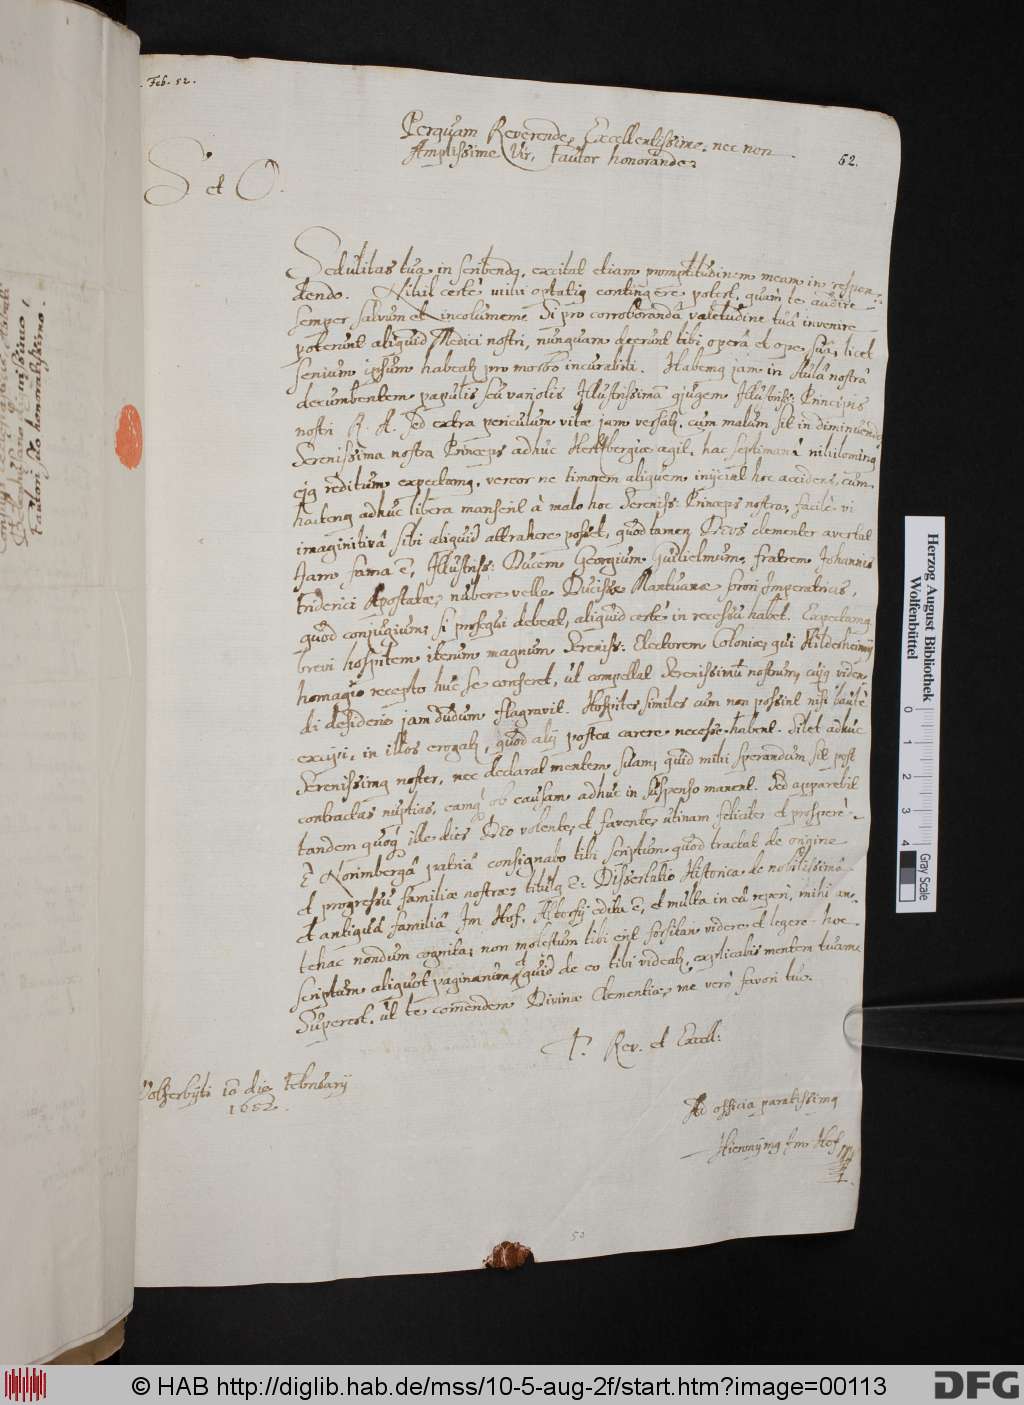 . Feb. 52.
Perquam Reverende, Excellentissime, nec non
Amplissime Vir, Fautor honorande,
52.
S. et O.
Sedulitas tua in scribendo, excitat etiam promptitudinem meam in respon-
dendo. Nihil certè mihi optatiq contingere potest, quàm te audire
semper salvum et incolumem. Si pro corroborandâ valetudine tuâ invenire
poterunt aliquid Medici nostri, nunquam deerunt tibi operâ et ope suâ, licet
senium ipsum habeat pro morbo incurabili. Habemq jam in Aulâ nostrâ
decumbentem papulis seu variolis Illustrissimā gjugem Illustriss: Principis
nostri R. A. sed extra periculum vitæ jam versat, cum malum sit in diminuendo
Serenissima nostra Princeps adhuc Hertzbergiæ agit, hac septimanâ nihilominq
ejq reditum expectamq, vereor ne timorem aliquem injiciat hoc accidens, cum
hactenq adhuc libera manserit à malo hoc Sereniss: Princeps nostra, facile vi
imaginativâ sibi aliquid attrahere posset, quod tamen Deus clementer avertat
Jam fama ē, Illustriss: Ducem Georgium Guilielmum, fratrem Johannis
Friderici Apostatæ, nubere velle Ducissæ Mantuanæ sorori Imperatricis,
quod conjugium, si prosequi debeat, aliquid certè in recessu habet. Expectamq
brevi hospitem iterum magnum Sereniss: Electorem Coloniæ, qui Hildesheimij
homagio recepto huc se conferet, ut compellat Serenissimū nostrum, cujq viden-
di desiderio jam dudum flagravit. Hospites similes cum non possint nisi lautè
excipi, in illos erogat, quod alij postea carere necesse habent. Silet adhuc
Serenissimq noster, nec declarat mentem suam, quid mihi sperandum sit post
contractas nuptias, eamq ob causam adhuc in suspenso manent. Sed apparebit
tandem quoq ille dies Deo volente, et favente, utinam feliciter et prosperè.
E Norimbergâ patriâ consignabo tibi scriptum quod tractat de origine
et progressu familiæ nostræ, titulq ē: Dissertatio Historica de nobilissimâ
et antiquâ familiâ Im Hof, Altorfij edita ē, et multa in eâ reperi, mihi an-
tehac nondum cognita, non molestum tibi erit forsitan videre et legere hoc
scriptum aliquot paginarum, et quid de eo tibi videat, explicabis mentem tuam.
Superest, ut te comendem Divinæ Clementiæ, me verò favori tuo.
T. Rev. et Excell:
Wolferbyti 10 die Februarij
1652.
Ad officia paratissimq
Hieronymq Im Hof
50
Herzog August Bibliothek
Wolfenbüttel
0 1 2 3 4
Gray Scale
© HAB http://diglib.hab.de/mss/10-5-aug-2f/start.htm?image=00113
DFG